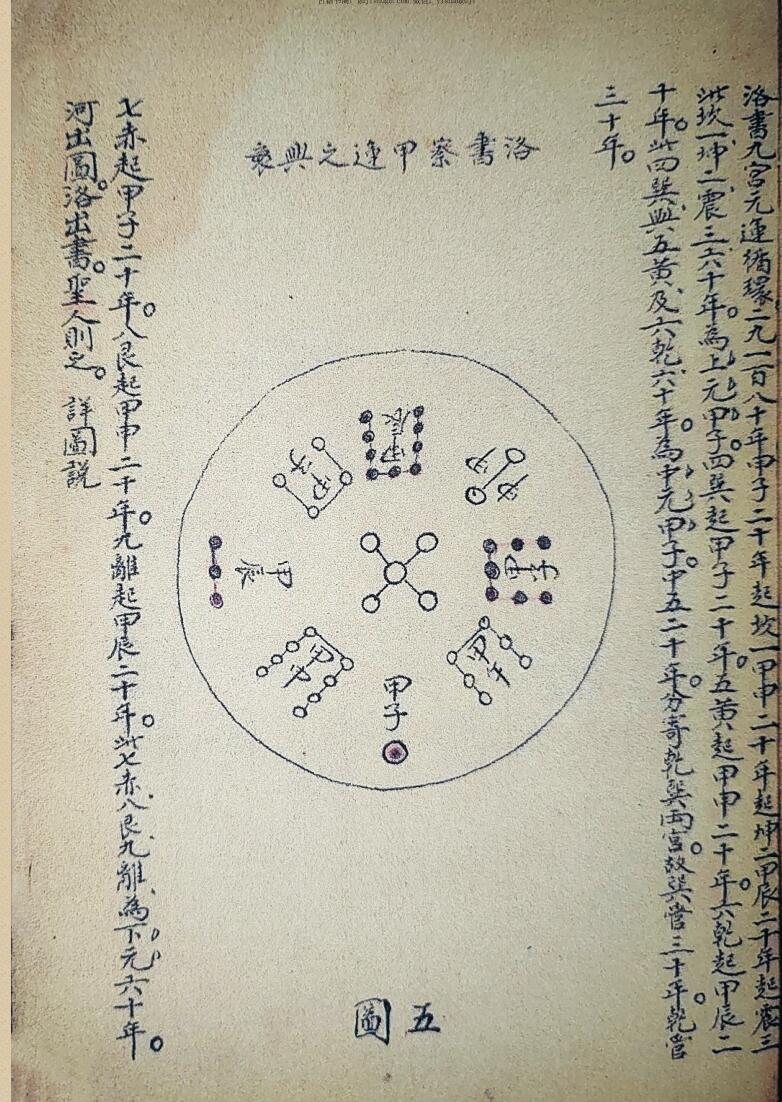 洛書九宮元運循環二九一百八十年甲子二十年起坎一甲申二十年起坤二甲辰二十年起震三
此坎一坤二震三六十年。為上元甲子。四巽起甲子二十年。五黃起甲申二十年。六乾起甲辰二
十年。此四巽與五黃及六乾六十年。為中元甲子。中五二十年。分寄乾巽兩宮。故巽管三十年。乾管
三十年。
洛書察甲運之興衰
甲辰
甲子
甲辰
甲子
甲申
甲子
五圖
七赤起甲子二十年。八艮起甲申二十年。九離起甲辰二十年。此七赤八艮九離為下元六十年。
河出圖。洛出書。聖人則之。 詳圖說